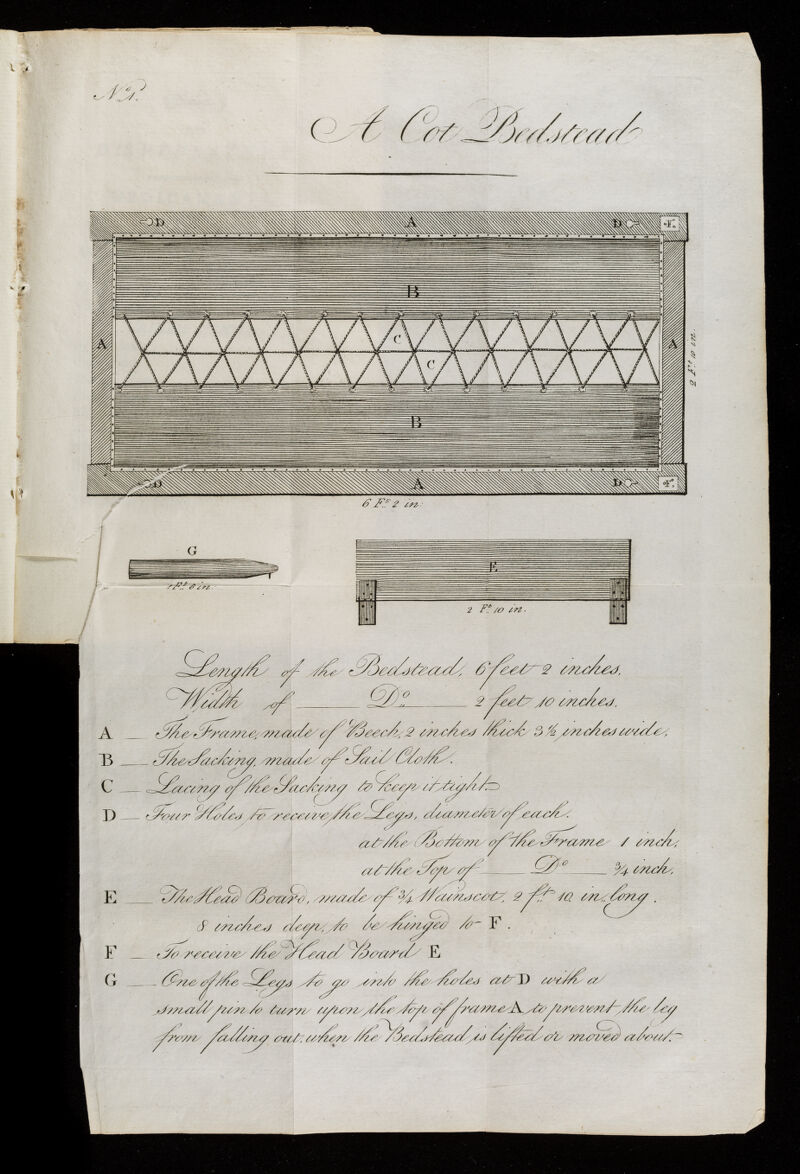 Nº 1.
A Cot Bedstead
D A D F.
B
A C A
C
B
2 Fᵗ 10 in.
D A D F.
6 Fᵗ 2 in.
G
E
2 Fᵗ 10 in.
Length of the Bedstead, 6 feet 2 inches.
Width of Dº 2 feet 10 inches.
A — The Frame, made of Beech, 2 inches thick 3½ inches wide.
B — The Sacking, made of Sail Cloth.
C — Lacing of the Sacking to keep it tight
D — Four Holes, to receive the Legs, diameter of each.
at the Bottom of the Frame 1 inch.
at the Top of — Dº — ¾ inch.
E — The Head Board, made of ¾ Wainscot, 2 fᵗ 10 in. long.
8 inches deep, to be hinged to F.
F — To receive the Head Board E
G — One of the Legs to go into the holes at D with a
small pin to turn upon the top of frame A, to prevent the leg
from falling out, when the Bedstead is lifted or moved about.